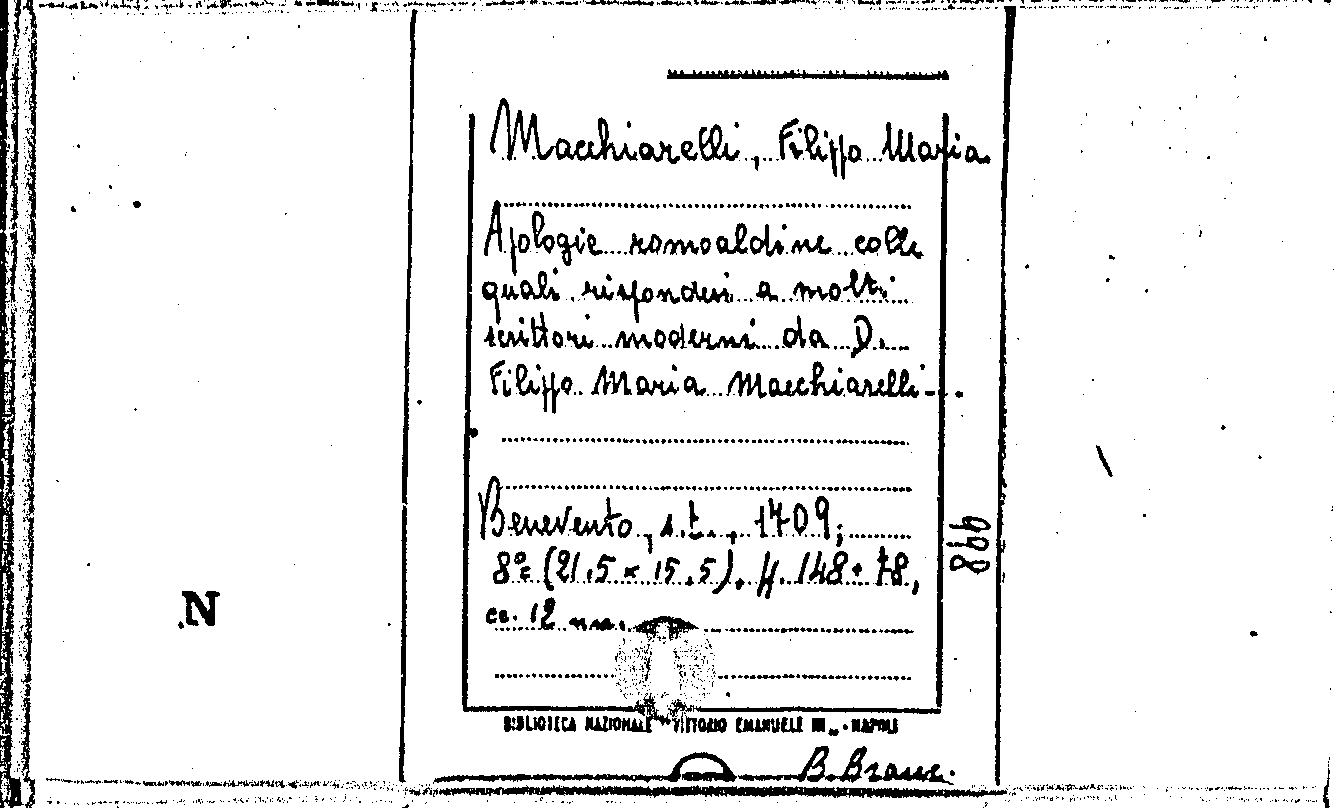 Macchiarelli, Filippo Maria
Apologie romoaldine colle
quali rispondesi a molti
scrittori moderni da D.
Filippo Maria Macchiarelli -
Benevento, s.t., 1709;
8º (21.5 × 15.5), pp. 148+78,
cc. 12 nn.
998
N
BIBLIOTECA NAZIONALE "VITTORIO EMANUELE III" - NAPOLI
B. Branc.